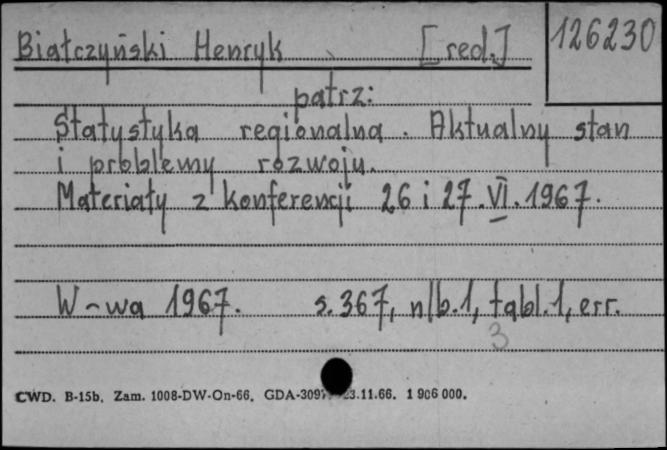 Białczyński Henryk [red.] 126230
patrz:
Statystyka regionalna. Aktualny stan
i problemy rozwoju.
Materiały z konferencji 26 i 27.VI.1967.
W-wa 1967. s.367, nlb.1, tabl.1, err.
3
CWD. B-15b. Zam. 1008-DW-On-66. GDA-309 23.11.66. 1 906 000.